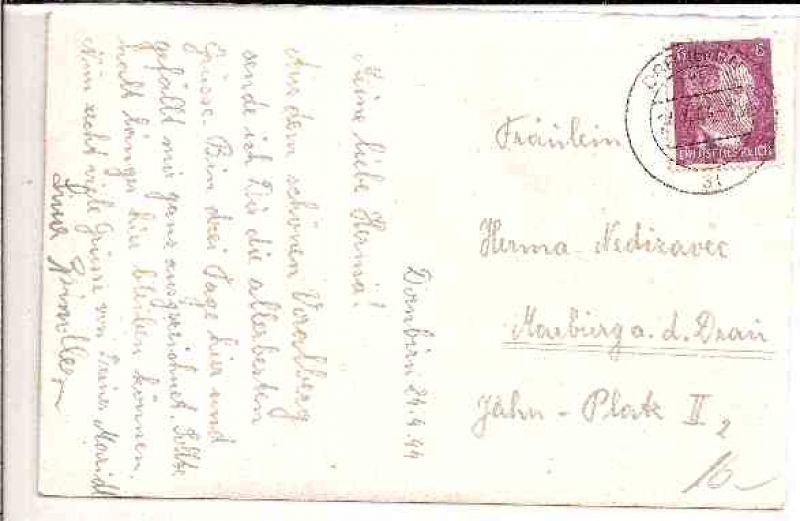 Dornbirn 24.4.44
Meine liebe Herma!
Aus dem schönen Voralberg
sende ich Dir die allerbesten
Grüsse. Bin drei Tage hier und
gefällt mir ganz ausgezeichnet. Sollte
halt länger hier bleiben können.
Nun recht viele Grüsse von Deiner
Fräulein
Herma Nedizavec
Marburg a. d. Drau
Jahn-Platz II
2
DEUTSCHES REICH
6